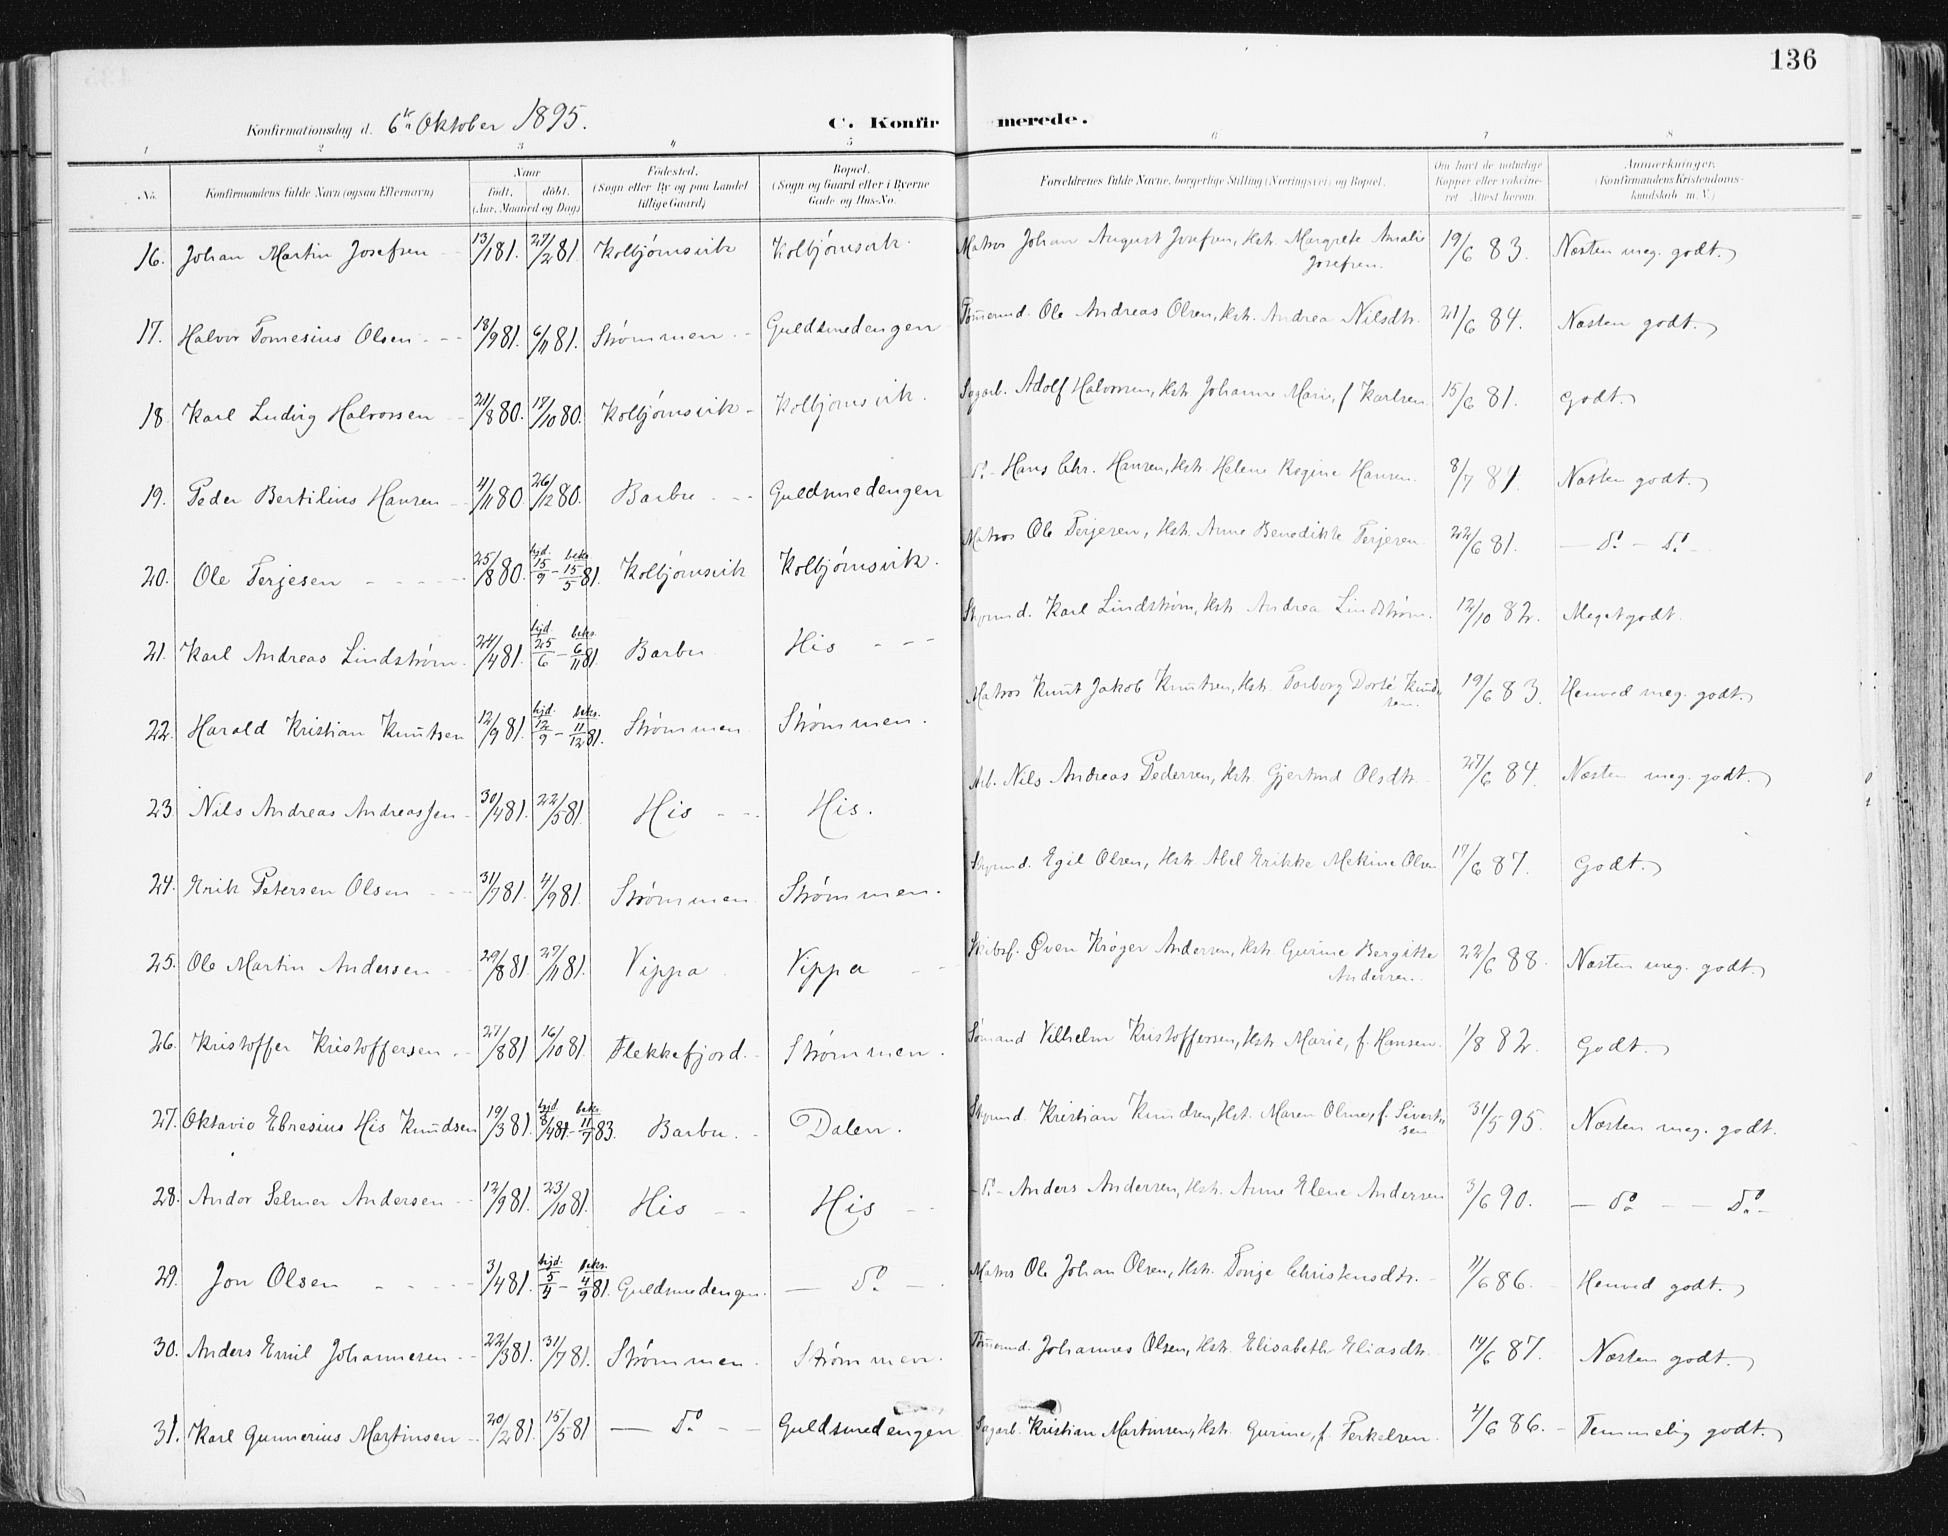 136
Konfirmationsdag d. 6te Oktober 1895.
C. Konfirmerede.
1 2 3 4 5 6 7 8
No. Konfirmandens fulde Navn (ogsaa Efternavn) Naar født, døbt. (Aar, Maaned og Dag) Fødested. (Sogn eller By og paa Landet tillige Gaard) Bopæl. (Sogn og Gaard eller i Byerne Gade og Hus-No. Forældrenes fulde Navne, borgerlige Stilling (Næringsvei) og Bopæl. Om havt de naturlige Kopper eller vakcineret. Attest herom. Anmerkninger. (Konfirmandens Kristendomskundskab m. V.)
16. Johan Martin Josefsen 13/1 81. 27/2 81. Kolbjørnsvik Kolbjørnsvik. Matros Johan August Josefsen, Hstr. Margrete Amalie Josefsen. 19/6 83. Næsten meg. godt.
17. Halvor Tomesius Olsen 18/9 81. 6/11 81. Strømmen Guldsmedengen Tømermd. Ole Andreas Olsen, Hstr. Andrea Nilsdtr. 21/6 84. Næsten godt.
18. Karl Ludvig Halvorsen 21/8 80. 17/10 80. Kolbjørnsvik Kolbjørnsvik. Sagarb. Adolf Halvorsen, Hstr. Johanne Marie, f. Karlsen 15/6 81. Godt.
19. Peder Bertilius Hansen 4/11 80 26/12 80. Barbu Guldsmedengen do. Hans Chr. Hansen, Hstr. Helene Regine Hansen. 8/7 81. Næsten godt.
20. Ole Terjesen 25/8 80. hjd. 15/9 - bekr. 15/5 81. Kolbjørnsvik Kolbjørnsvik. Matros Ole Terjesen, Hstr. Anne Benedikte Terjesen. 22/6 81. - do. - do. -
21. Karl Andreas Lindstrøm. 24/4 81. hjd. 25/6 - bekr. 6/11 81. Barbu His Styrmd. Karl Lindstrøm, Hstr. Andrea Lindstrøm. 12/10 82. Meget godt.
22. Harald Kristian Knutsen 12/9 81. hjd. 12/9 - bekr. 11/12 81. Strømmen Strømmen. Matros Knut Jakob Knutsen, Hstr. Torborg Dorte Knudsen. 19/6 83. Henved meg. godt.
23. Nils Andreas Andreassen 30/4 81. 22/5 81. His His. Arb. Nils Andreas Pedersen, Hstr. Gjertrud Olsdtr. 27/6 84. Næsten meg. godt.
24. Erik Petersen Olsen 31/7 81. 4/9 81. Strømmen Strømmen. Styrmd. Egil Olsen, Hstr. Abel Erikke Mekine Olsen 17/6 87. Godt.
25. Ole Martin Andersen 29/8 81. 27/11 81. Vippa Vippa Skibsf. Øven Krøger Andersen, Hstr. Gurine Bergitte Andersen. 22/6 88. Næsten meg. godt.
26. Kristoffer Kristoffersen. 27/8 81 16/10 81. Flekkefjord. Strømmen. Sømand Vilhelm Kristoffersen, Hstr. Marie, f. Hansen. 1/8 82. Godt.
27. Oktavio Ebnesius His Knudsen 19/3 81. hjd. 8/4 81. - bekr. 11/7 83. Barbu. Dalen. Styrmd. Kristian Knudsen, Hst. Maren Oline, f. Sivertsen 31/5 95. Næsten meg. godt.
28. Andor Selmer Andersen 12/9 81. 23/10 81. His His do. Anders Andersen, Hstr. Anne Elene Andersen 3/6 90. - do. - do. -
29. Jon Olsen 3/4 81. hjd. 5/4 - bekr. 4/9 81. Guldsmedengen. - do. - Matros Ole Johan Olsen, Hstr. Torije Christensdtr. 11/6 86. Henved godt.
30. Anders Emil Johannesen 22/3 81. 31/7 81. Strømmen. Strømmen. Tømermd. Johannes Olsen, Hstr. Elisabeth Eliasdtr. 14/6 87. Næsten godt.
31. Karl Gunnerius Martinsen 20/2 81. 15/5 81 - do. - Guldsmedengen Sagarb. Kristian Martinsen, Hstr. Gurine, f. Terkelsen. 4/6 86. Temmelig godt.